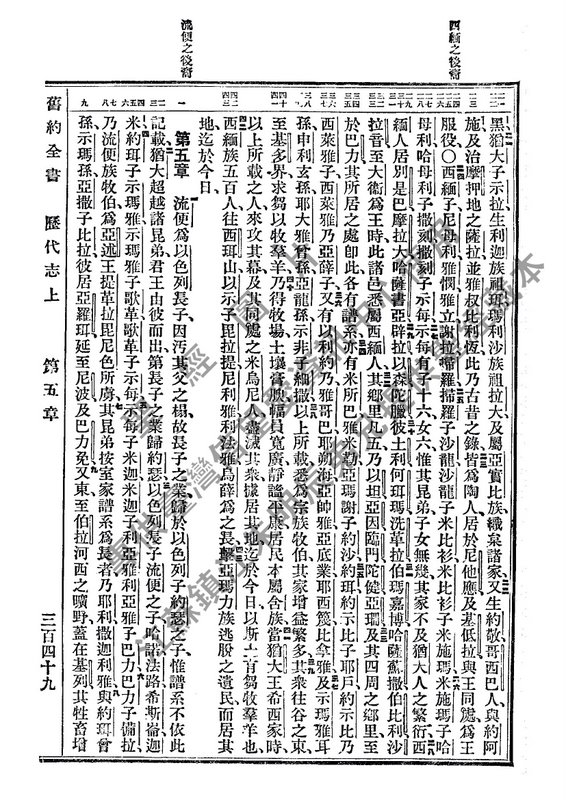 西緬之後裔
黑猶大子示拉生利迦族祖珥瑪利沙族祖拉大及屬亞實比族織枲諸家又生約敬哥西巴人與約阿
施及治摩押地之薩拉並雅叔比利恆此乃古昔之錄皆為陶人居於尼他應及基低拉與王同處為王
服役〇西緬子尼母利雅憫雅立謝拉掃羅掃羅子沙龍沙龍子米比衫米比衫子米施瑪米施瑪子哈
母利哈母利子撒刻撒刻子示每示每有子十六女六惟其昆弟子女無幾其家不及猶大人之繁衍西
緬人居別是巴摩拉大哈薩書亞辟拉以森陀臘彼土利何珥瑪洗革拉伯瑪嘉博哈薩蘇撒伯比利沙
拉音至大衛為王時此諸邑悉屬西緬人其鄉里凡五乃以坦亞因臨門陀健亞珊及其四周之鄉里至
於巴力其所居之處卽此各有譜系又有米所巴雅米勒亞瑪謝子約沙約珥約示比子耶戶約示比乃
西萊雅子西萊雅乃亞薛子又有以利約乃雅哥巴耶朔海亞帥雅亞底業耶西篾比拿雅及示瑪雅耳
孫申利玄孫耶大雅曾孫亞龍孫示非子細撒以上所載悉為宗族牧伯其家增益繁多其衆往谷之東
至基多界求芻以牧羣羊乃得牧場土壤膏腴幅員寬廣靜謐平康居民本屬含族當猶大王希西家時
以上所載之人來攻其幕及其同處之米烏尼人盡滅其衆據居其地迄於今日以斯土有芻牧羣羊也
西緬族五百人往西珥山以示子毘拉提尼利雅利法雅烏薛為之長擊亞瑪力族逃脫之遺民而居其
地迄於今日
流便之後裔
第五章 流便為以色列長子因汚其父之榻故長子之業歸於以色列子約瑟之子惟譜系不依此
記載猶大超越諸昆弟君王由彼而出第長子之業歸約瑟以色列長子流便之子哈諾法路希斯崙迦
米約珥子示瑪雅示瑪雅子歌革歌革子示每示每子米迦米迦子利亞雅利亞雅子巴力巴力子備拉
乃流便族牧伯為亞述王提革拉毘尼色所虜其昆弟按室家譜系為長者乃耶利撒迦利雅與約珥曾
孫示瑪孫亞撒子比拉彼居亞羅珥延至尼波及巴力免又東至伯拉河西之曠野蓋在基列其牲畜增
舊約全書 歷代志上 第五章 三百四十九